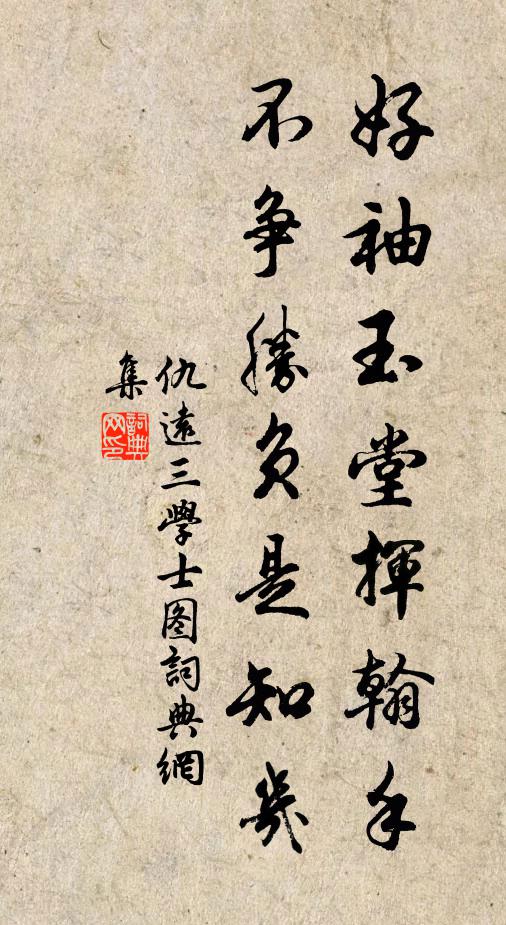 好袖玉堂揮翰手
不争勝負是知幾
仇遠三學士图詞典網
集
詞典网印